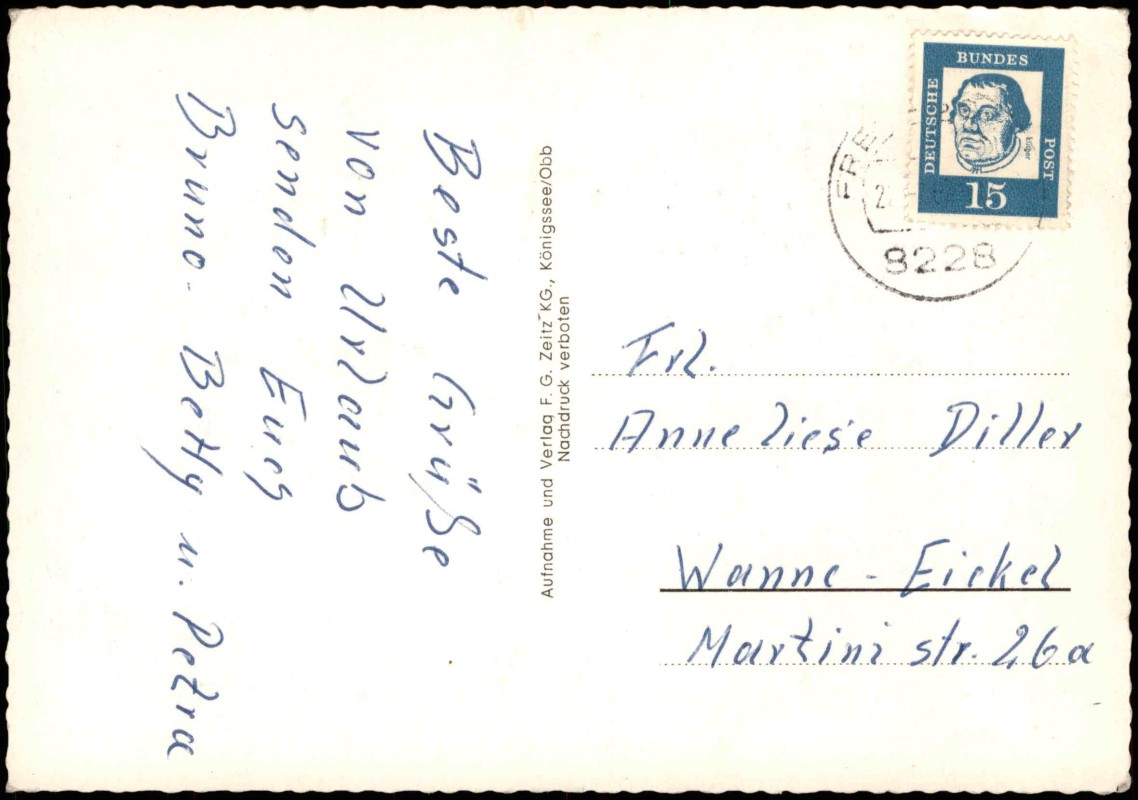 Beste Grüße
von Urlaub
senden Euch
Bruno. Betty u. Petra
Aufnahme und Verlag F. G. Zeitz KG., Königssee/Obb
Nachdruck verboten
DEUTSCHE
BUNDES
POST
15
8228
Frl.
Anneliese Diller
Wanne-Eickel
Martinistr. 26a